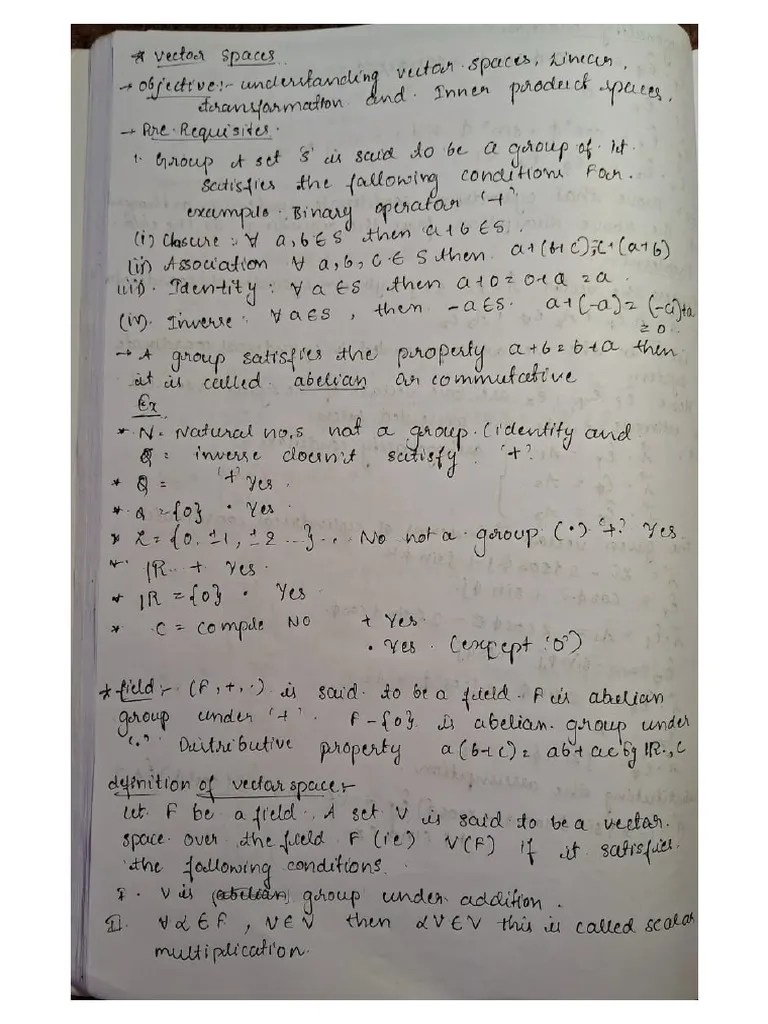 * Vector spaces
→ Objective:- understanding vector spaces, Linear
transformation and Inner product spaces.
→ Pre-Requisites.
1. Group A set 'S' is said to be a group of it
satisfies the following conditions For
example. Binary operator '+'
(i) Closure : ∀ a, b ∈ S then a + b ∈ S.
(ii) Association ∀ a, b, c ∈ S then a+(b+c)=c+(a+b)
(iii). Identity : ∀ a ∈ S then a+0=0+a=a.
(iv). Inverse : ∀ a∈S, then -a∈S. a+(-a) = (-a)+a
= 0
→ A group satisfies the property a+b=b+a then
it is called abelian or commutative
Ex
* N = Natural no.s not a group. (identity and
Q = inverse doesn't satisfy '+'
* Q = '+' Yes.
* Q = {0} • Yes.
* Z = {0, ±1, ±2 ...} .. No not a group (•) '+' Yes
* IR .. + Yes.
* IR = {0} • Yes
* C = comple NO + Yes.
• Yes. (except '0')
* field :- (F, +, •) is said to be a field. F is abelian
group under '+'. F-{0} is abelian group under
'•' Distributive property a(b+c) = ab+ac Eg IR., C
definition of vector space:-
Let F be a field. A set V is said to be a vector
space over the field F (ie) V(F) if it satisfies
the following conditions.
I. V is (abelian) group under addition.
II. ∀ α ∈ F, V ∈ V then αV ∈ V this is called scalar
multiplication.